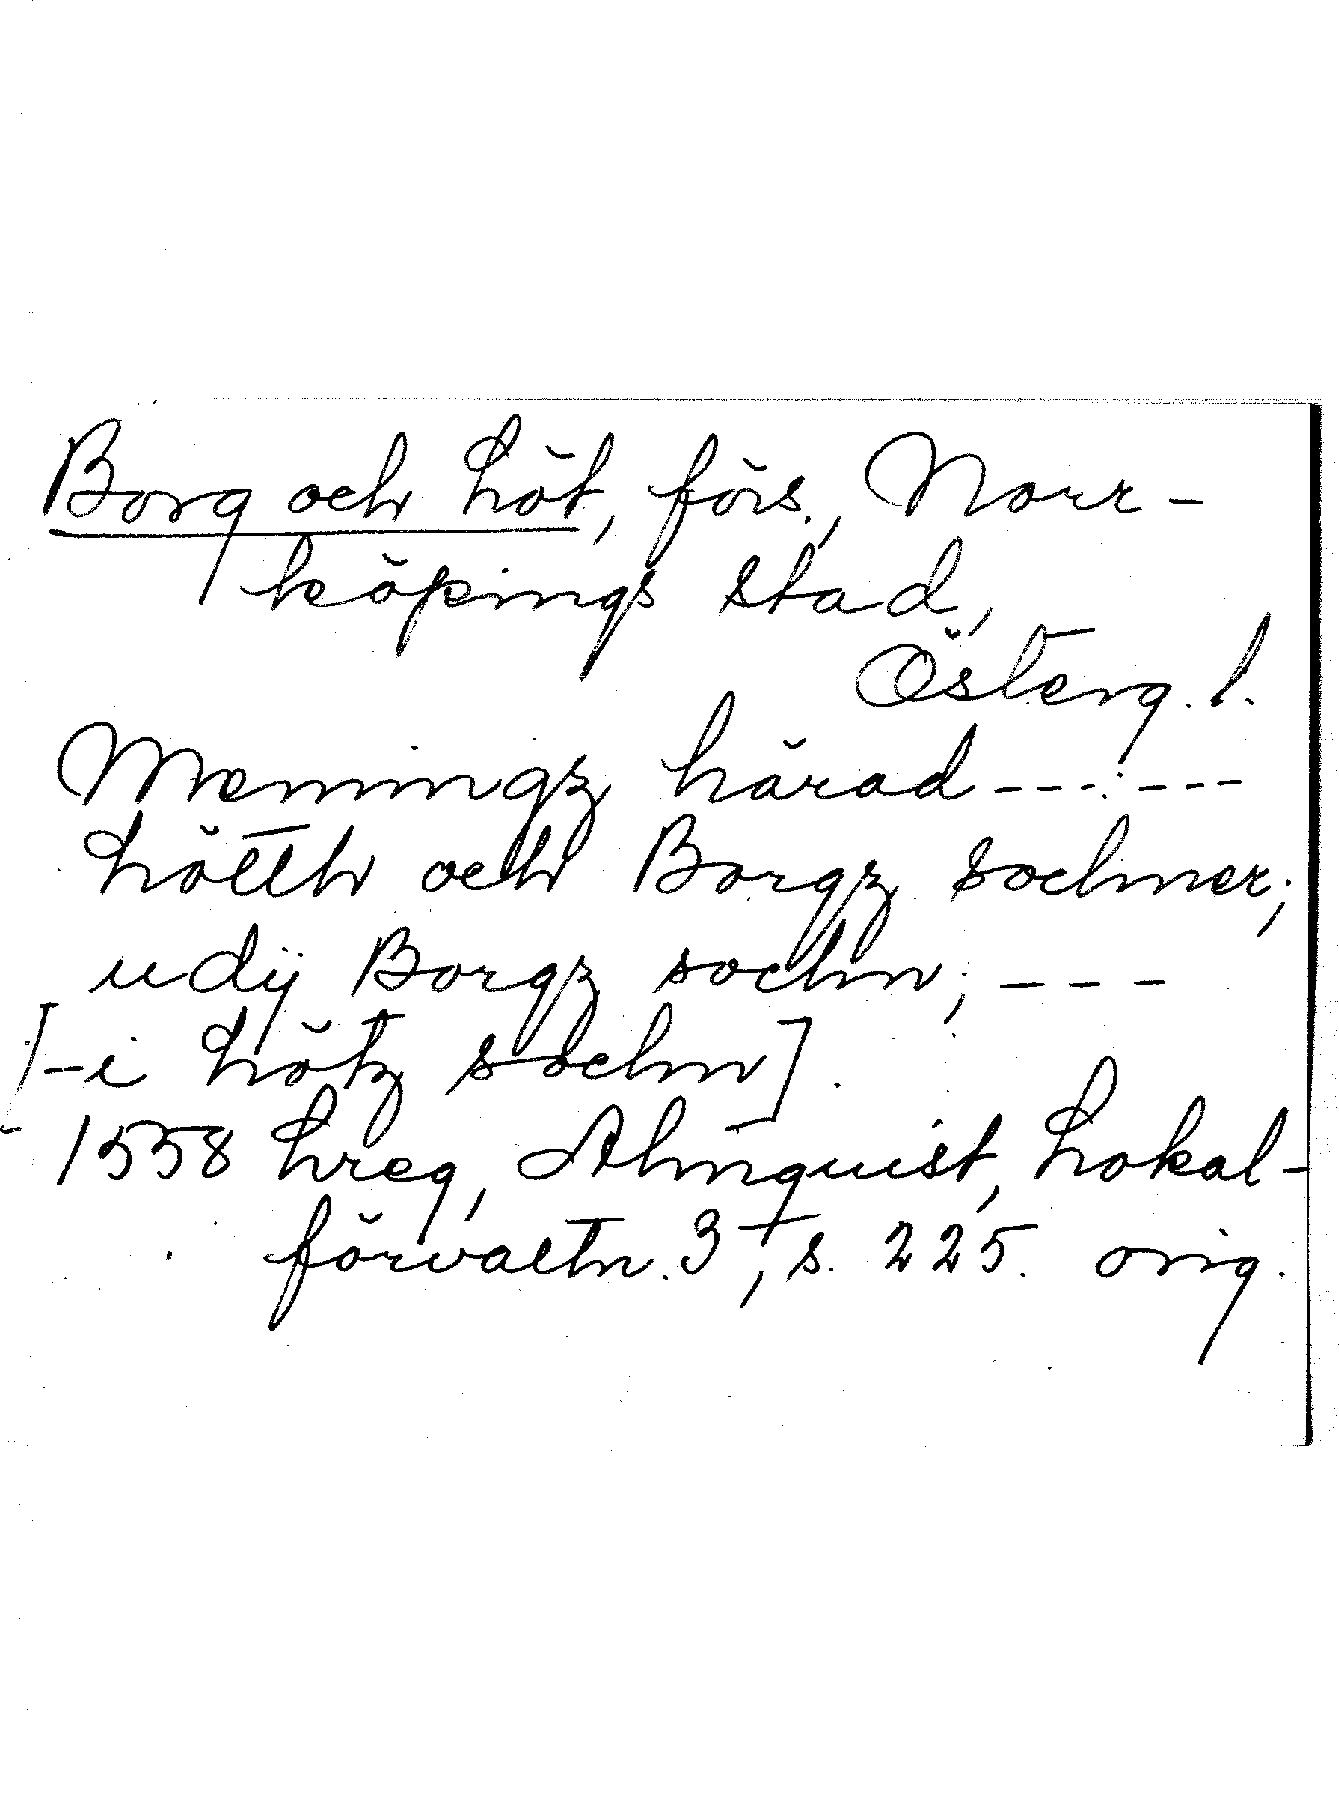 Borg och Löt, förs., Norr-
köpings stad,
Österg. l.
Memmingz härad ---:---
Löttth och Borgz sochner;
udij Borgz sochn; ---
[-i Lötz sochn].
1558 Lreg, Almquist, Lokal-
förvaltn. 3, s. 225. orig.